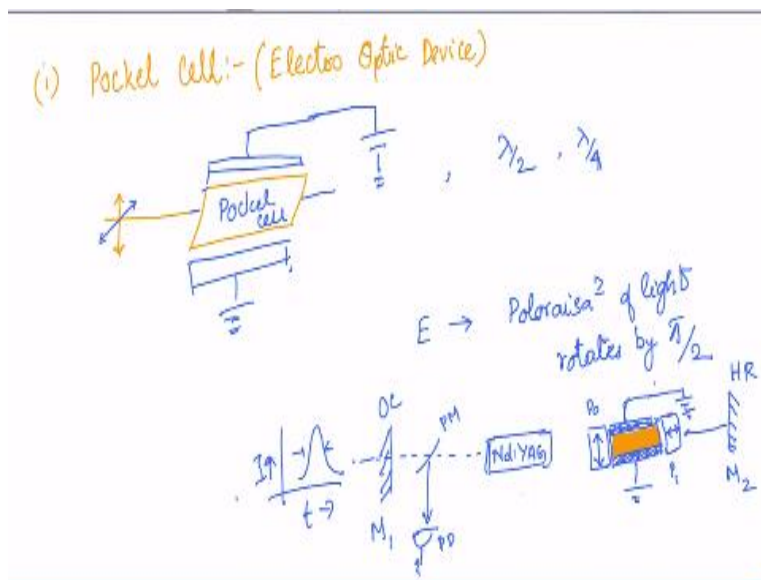 (i) Pockel Cell:- (Electro Optic Device)
Pockel cell
, λ/2 , λ/4
E → Polaraisaⁿ of light
rotates by π/2
HR
OC
PM
P₀
I↑
Nd:YAG
P₁
t→
M₁
PD
M₂